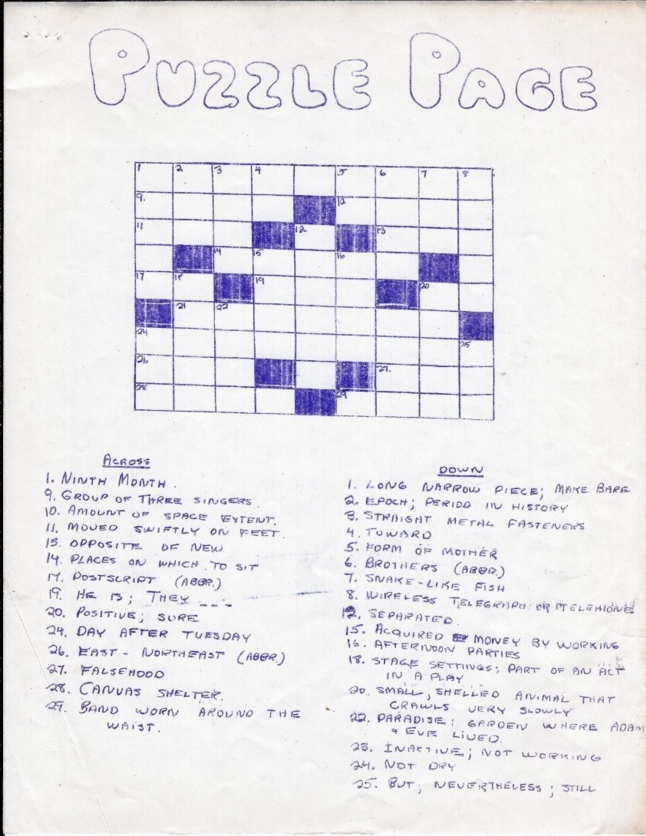 PUZZLE PAGE
1 2 3 4 5 6 7 8
9.
11 12 13
14 15 16
17 18 19 20
21 22
24 25
26 27.
28 29
ACROSS
1. NINTH MONTH.
9. GROUP OF THREE SINGERS.
10. AMOUNT OF SPACE EXTENT.
11. MOVED SWIFTLY ON FEET.
13. OPPOSITE OF NEW
14. PLACES ON WHICH TO SIT
17. POSTSCRIPT (ABBR.)
19. HE IS; THEY ___
20. POSITIVE; SURE
24. DAY AFTER TUESDAY
26. EAST-NORTHEAST (ABBR)
27. FALSEHOOD
28. CANVAS SHELTER.
29. BAND WORN AROUND THE
WAIST.
DOWN
1. LONG NARROW PIECE; MAKE BARE
2. EPOCH; PERIOD IN HISTORY
3. STRAIGHT METAL FASTENERS
4. TOWARD
5. FORM OF MOTHER
6. BROTHERS (ABBR)
7. SNAKE-LIKE FISH
8. WIRELESS TELEGRAPH OR TELEPHONE
12. SEPARATED.
15. ACQUIRED MONEY BY WORKING
16. AFTERNOON PARTIES
18. STAGE SETTINGS; PART OF AN ACT
IN A PLAY
20. SMALL, SHELLED ANIMAL THAT
CRAWLS VERY SLOWLY
22. PARADISE: GARDEN WHERE ADAM
& EVE LIVED.
23. INACTIVE; NOT WORKING
24. NOT DRY
25. BUT; NEVERTHELESS; STILL